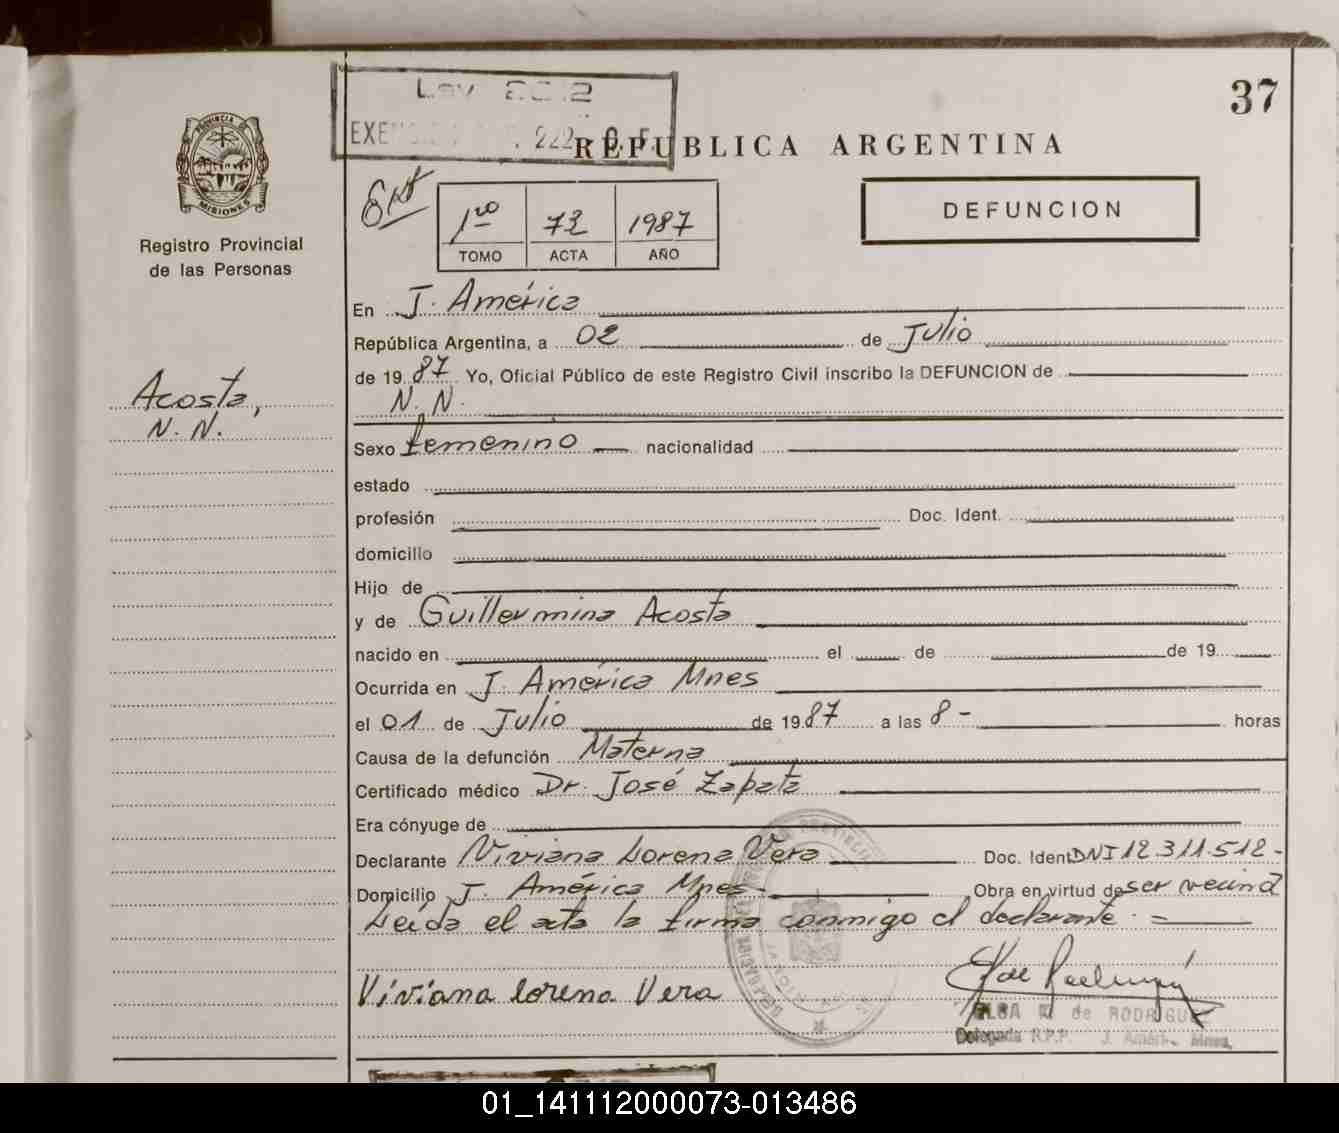 37
Ley 2012
222
REPUBLICA ARGENTINA
PROVINCIA DE
MISIONES
Registro Provincial
de las Personas
1ro 73 1987
TOMO ACTA AÑO
DEFUNCION
Acosta,
N. N.
En J. América
República Argentina, a 02 de Julio
de 1987 Yo, Oficial Público de este Registro Civil inscribo la DEFUNCION de
N. N.
Sexo femenino nacionalidad
estado
profesión Doc. Ident.
domicilio
Hijo de
y de Guillermina Acosta
nacido en el de de 19
Ocurrida en J. América Mnes
el 01 de Julio de 1987 a las 8 - horas
Causa de la defunción Materna
Certificado médico Dr. José Zapata
Era cónyuge de
Declarante Viviana Lorena Vera Doc. Ident DNI 12.311.512-
Domicilio J. América Mnes- Obra en virtud de ser vecina
Leída el acta la firma conmigo el declarante. =
Viviana Lorena Vera
ELSA de RODRIGUEZ
Delegada R.P.P. J. Améri. Mnes.
01_141112000073-013486